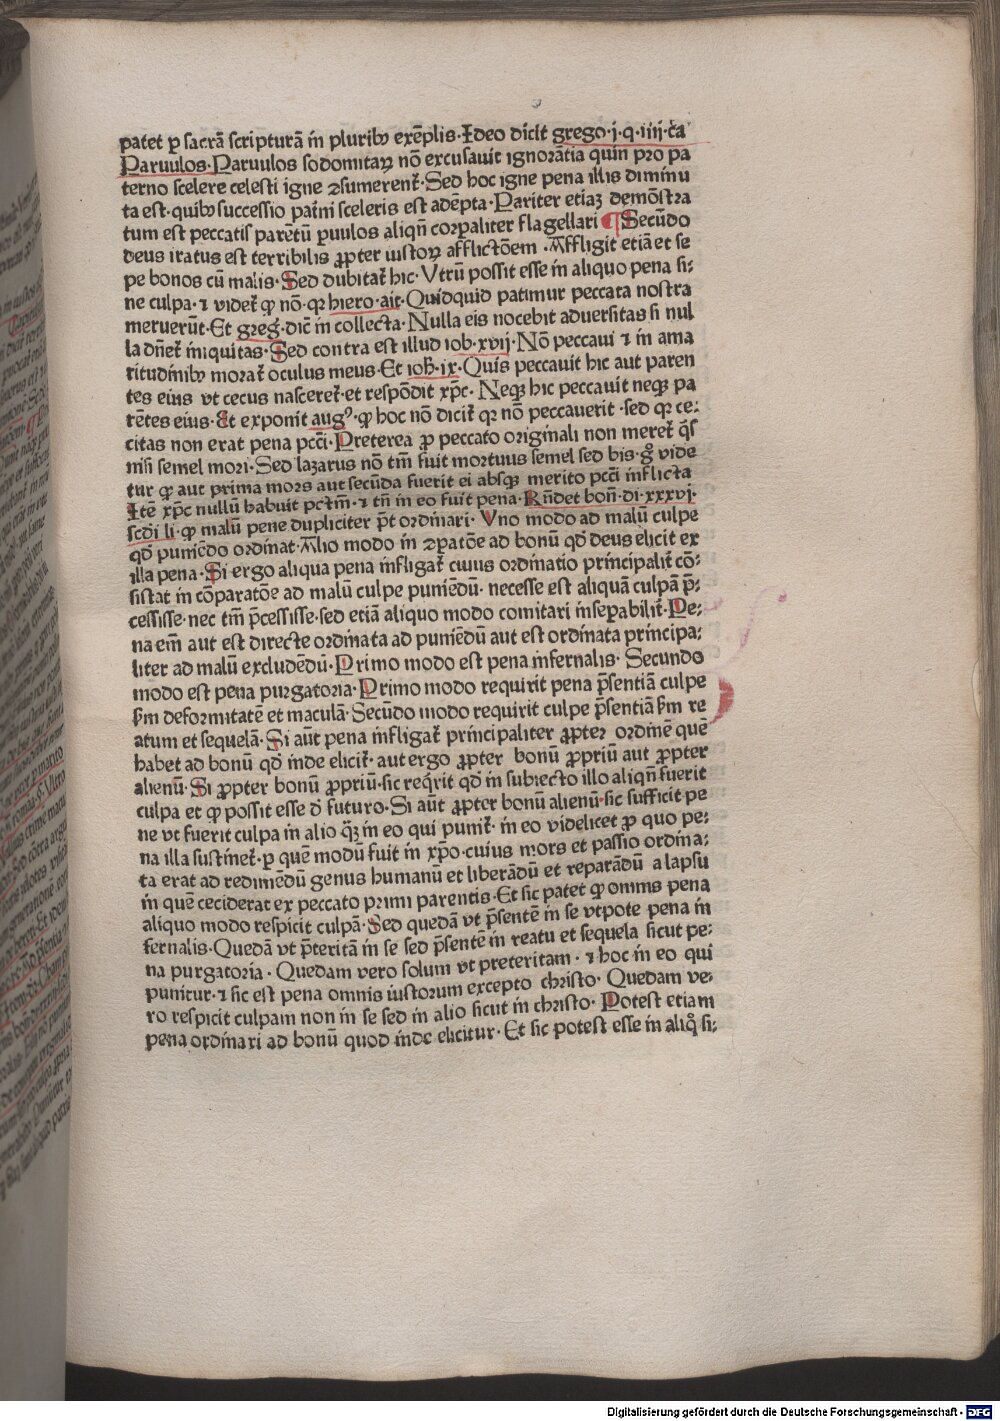 patet ꝑ sacrā scripturā in pluribꝫ exēplis·Ideo dicit grego·j·q·iiij·ca̅
Paruulos·Paruulos sodomitaꝝ nō excusauit ignorātia quin pro pa
terno scelere celesti igne ꝯsumerent̄·Sed hoc igne pena illis diminu
ta est·quibꝫ successio pat̄ni sceleris est adēpta·Pariter etiaꝫ demōstra
tum est peccatis parētū ꝑuulos aliqn̄ corꝑaliter flagellari ¶Secūdo
deus iratus est terribilis ꝓpter iustoꝝ afflictōem ·Affligit etiā et se
pe bonos cū malis·Sed dubitat̄ hic·Utrū possit esse in aliquo pena si⸗
ne culpa·⁊ videt̄ ꝙ nō·qꝛ hiero·ait·Quidquid patimur peccata nostra
meruerūt·Et greg·dic̄ in collecta·Nulla eis nocebit aduersitas si nul
la dn̄et̄ iniquitas·Sed contra est illud iob·xvij·Nō peccaui ⁊ in ama
ritudinibꝫ morat̄ oculus meus·Et ioh̄·ix·Quis peccauit hic aut paren
tes eius vt cecus nasceret̄·et respōdit xp̄c· Neqꝫ hic peccauit neqꝫ pa
rētes eius·At exponit augꝰ·ꝙ hoc nō dicit̄ qꝛ nō peccauerit ·sed qꝛ ce⸗
citas non erat pena pcc̄i·Preterea ꝓ peccato originali non meret̄ qͥs
nisi semel mori·Sed lazarus nō tm̄ fuit mortuus semel sed bis·gͦ vide
tur ꝙ aut prima mors aut secūda fuerit ei absqꝫ merito pcc̄i inflicta
Itē xp̄c nullū habuit pctm̄·⁊ tn̄ in eo fuit pena·Rn̄det bon̄·di·xxxvj·
scdi li·ꝙ malū pene dupliciter pn̄t ordinari· Uno modo ad malū culpe
qd̄ puniēdo ordinat·Alio modo in ꝯꝑatōe ad bonū qd̄ deus elicit ex
illa pena·Si ergo aliqua pena infligat̄ cuius ordinatio principalit̄ cō⸗
sistat in cōparatōe ad malū culpe puniēdū· necesse est aliquā culpā p̄⸗
cessisse·nec tm̄ p̄cessisse·sed etiā aliquo modo comitari insepabilit̄·Pe⸗
na em̄ aut est directe ordinata ad puniēdū aut est ordinata principa⸗
liter ad malū excludēdū·Primo modo est pena infernalis· Secundo
modo est pena purgatoria·Primo modo requirit pena p̄sentiā culpe
ẜm deformitatē et maculā·Secūdo modo requirit culpe p̄sentiā ẜm re
atum et sequelā·Si aūt pena infligat̄ principaliter ꝓpter ordinē quē
habet ad bonū qd̄ inde elicit̄·aut ergo ꝓpter bonū ꝓpriū aut ꝓpter
alienū·Si ꝓpter bonū ꝓpriū·sic reqͥrit qd̄ in subiecto illo aliqn̄ fuerit
culpa et ꝙ possit esse d̄ futuro·Si aūt ꝓpter bonū alienū·sic sufficit pe
ne vt fuerit culpa in alio qͣꝫ in eo qui punit̄· in eo videlicet ꝓ quo pe⸗
na illa sustinet̄·ꝑ quē modū fuit in xp̄o·cuius mors et passio ordina⸗
ta erat ad redimēdū genus humanū et liberādū et reparādū a lapsu
in quē ceciderat ex peccato primi parentis·Et sic patet ꝙ omnis pena
aliquo modo respicit culpā·Sed quedā vt p̄sentē in se vtpote pena in
fernalis·Quedā vt p̄teritā in se sed p̄sentē in reatu et sequela sicut pe⸗
na purgatoria · Quedam vero solum vt preteritam · ⁊ hoc in eo qui
punitur·⁊ sic est pena omnis iustorum excepto christo· Quedam ve⸗
ro respicit culpam non in se sed in alio sicut in christo· Potest etiam
pena ordinari ad bonū quod inde elicitur· Et sic potest esse in aliqͦ si⸗
Digitalisierung gefördert durch die Deutsche Forschungsgemeinschaft - DFG